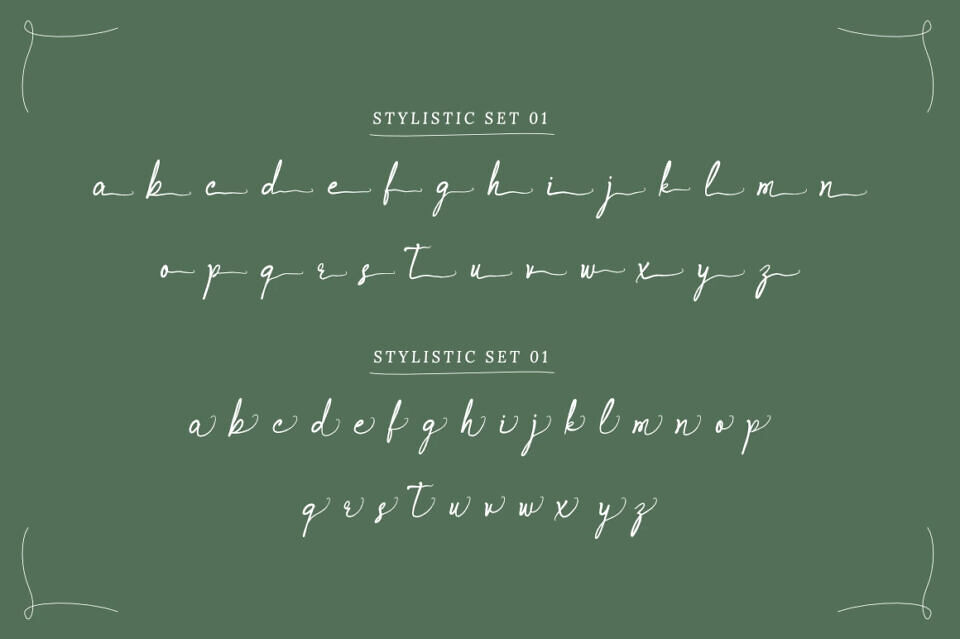 STYLISTIC SET 01
a b c d e f g h i j k l m n
o p q r s t u v w x y z
STYLISTIC SET 01
a b c d e f g h i j k l m n o p
q r s t u v w x y z